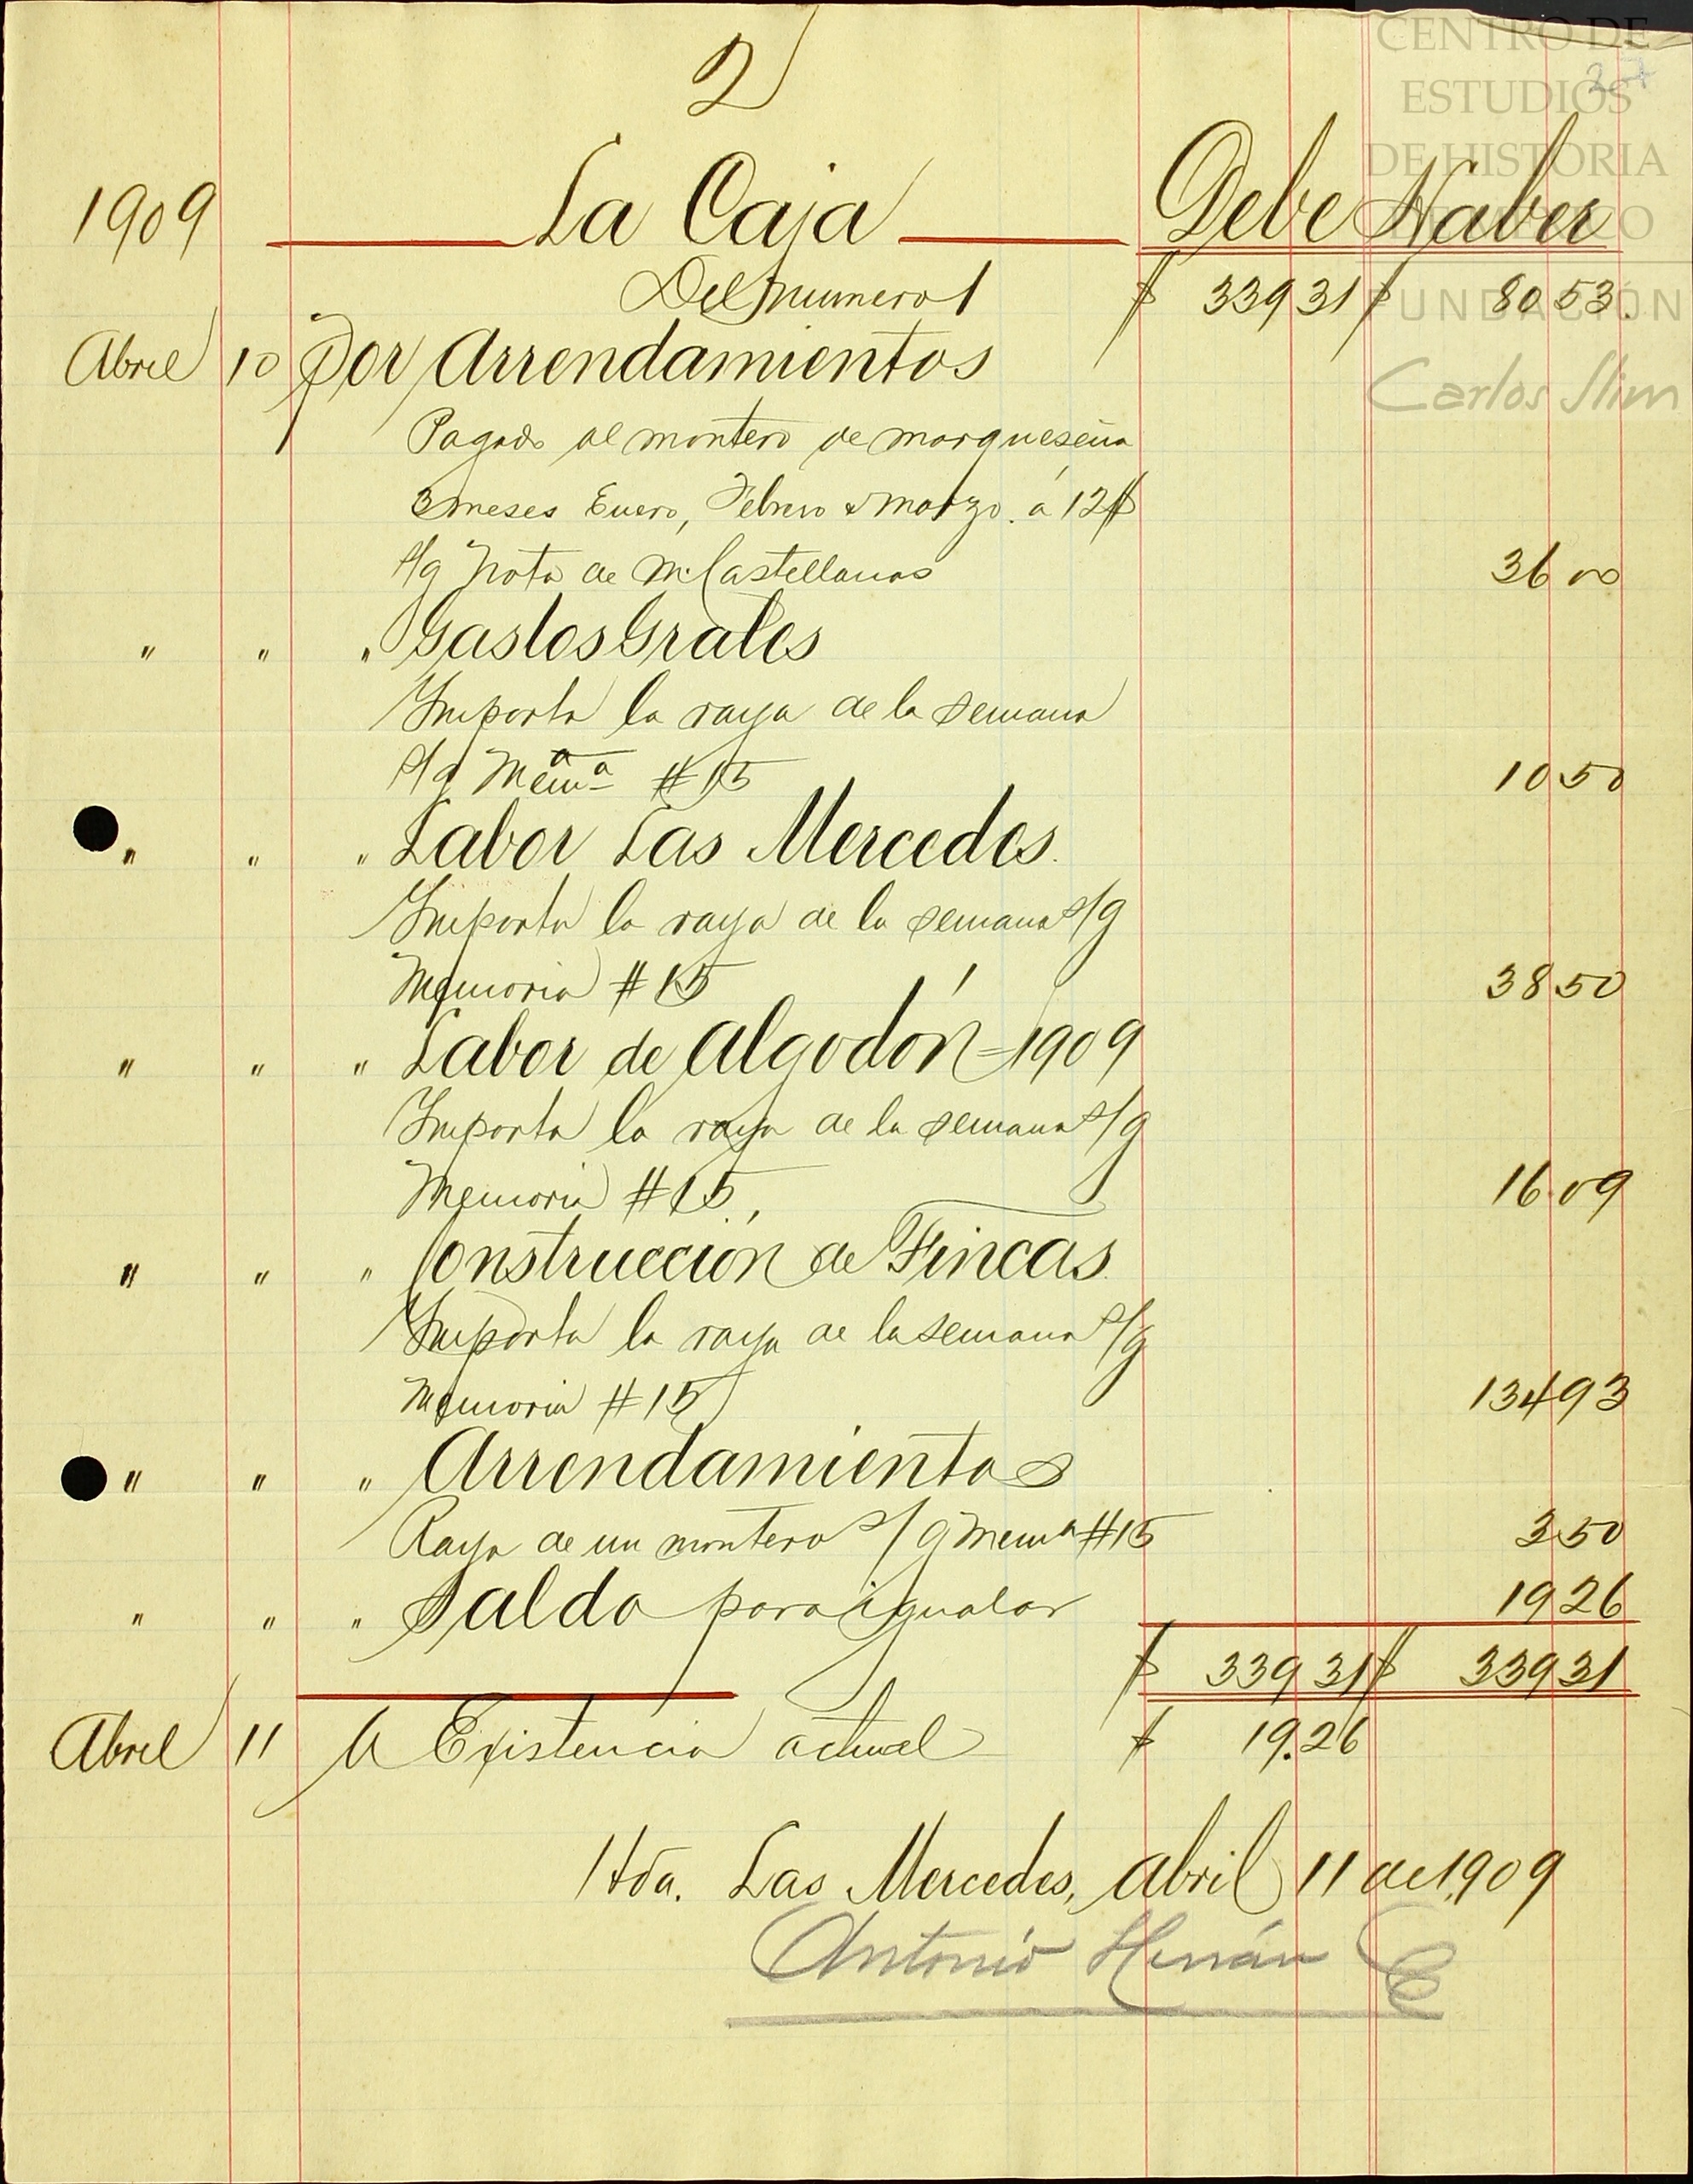 2
CENTRO DE
ESTUDIOS
27
DE HISTORIA
DE MÉXICO
1909 La Caja Debe Haber
Del numero 1 $ 339 31 $ 80 53.
FUNDACIÓN
Carlos Slim
Abril 10 Por Arrendamientos
Pagado al montero de marqueseña
3 meses Enero, Febrero & Marzo. á 12$
s/g Nota de M. Castellanos 36 00
" " " Gastos Grales
Importa la raya de la semana
s/g Mema # 15 10 50
" " " Labor Las Mercedes.
Importa la raya de la semana s/g
Memoria # 15 38 50
" " " Labor de Algodón = 1909
Importa la raya de la semana s/g
Memoria # 15, 16.09
" " " Construcción de Fincas
Importa la raya de la semana s/g
Memoria # 15 134 93
" " " Arrendamientos
Raya de un montero s/g Mema # 15 3.50
" " " Saldo para igualar 19 26
$ 339 31 $ 339 31
Abril 11 A Existencia actual $ 19.26
Hda. Las Mercedes, Abril 11 de 1909
Antonio Herrán